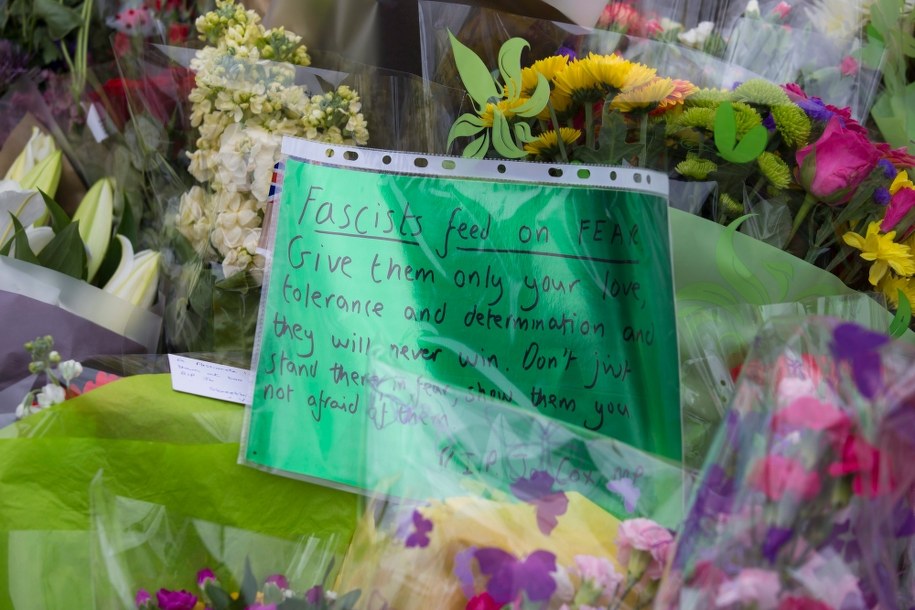 Fascists feed on FEAR
Give them only your love,
tolerance and determination and
they will never win. Don't just
stand there in fear, show them you
not afraid of them.
R.I.P Jo Cox, MP